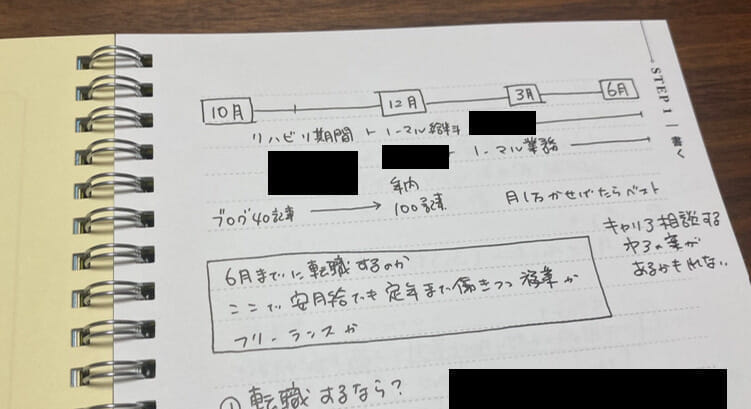 10月 12月 3月 6月
リハビリ期間 ノーマル給料
ノーマル業務
年内
ブログ40記事 → 100記事
月1万かせげたらベスト
キャリア相談する
のが
あるかもしれない
6月までに転職するのか
ここで安月給でも定年まで働きつつ副業か
フリーランスか
① 転職するなら?
STEP 1 書く